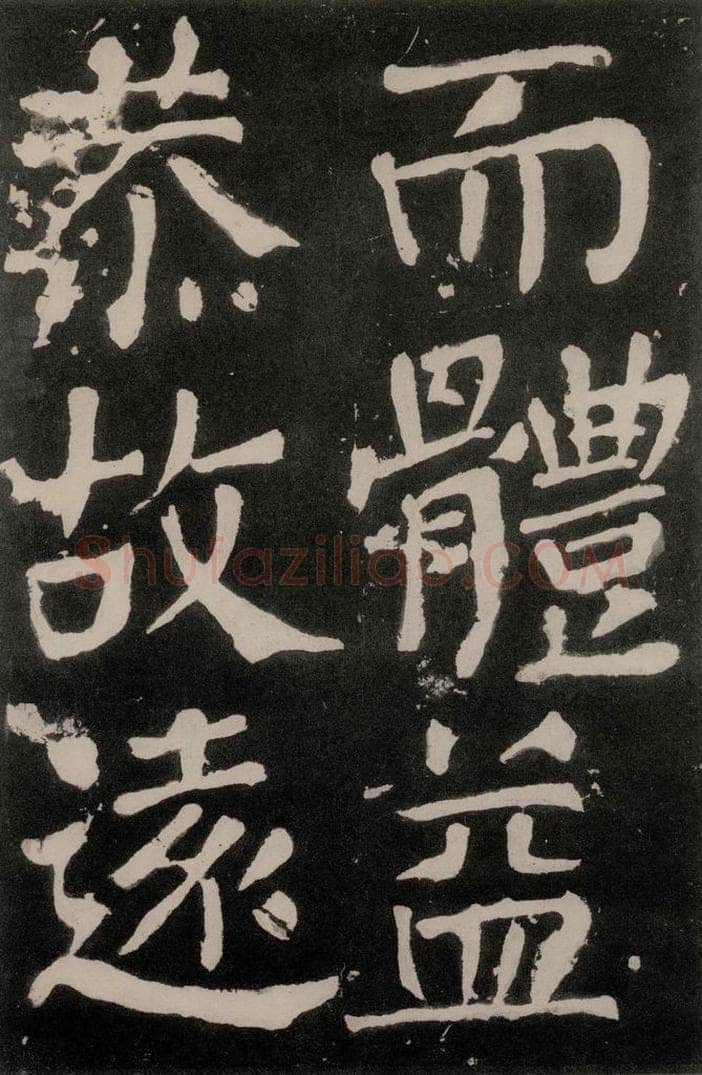 而體益
恭故遠
Shufaziliao.COM